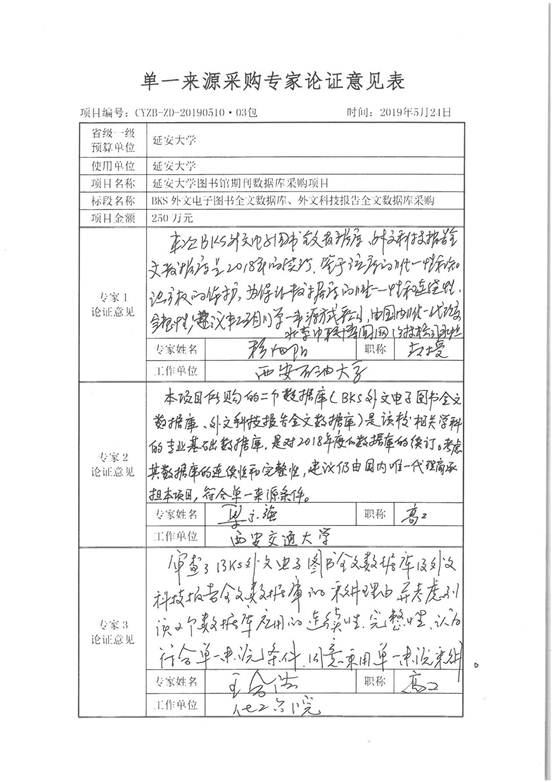 单一来源采购专家论证意见表
项目编号：CYZB-ZD-20190510·03包 时间：2019年5月24日
省级一级预算单位 延安大学
使用单位 延安大学
项目名称 延安大学图书馆期刊数据库采购项目
标段名称 BKS 外文电子图书全文数据库、外文科技报告全文数据库采购
项目金额 250 万元
专家 1 论证意见
本次BKS外文电子图书全文数据库、外文科技报告全
文数据库是2018年的续订，鉴于该库的唯一性和知
识产权的保护，为保证数据库的唯一性和连续性、
合理性，建议本项目用单一来源方式
专家姓名 职称 教授
工作单位 西安石油大学
专家 2 论证意见
本项目所购的二个数据库（BKS外文电子图书全文
数据库、外文科技报告全文数据库）是该校相关学科
的专业基础数据库，是对2018年度的数据库的续订。考虑
其数据库的连续性和完整性，建议仍由国内唯一代理商承
担本项目，符合单一来源条件。
专家姓名 职称 高工
工作单位 西安交通大学
专家 3 论证意见
审查了BKS外文电子图书全文数据库及外文
科技报告全文数据库的采购理由，并考虑到
该2个数据库应用的连续性、完整性，认为
符合单一来源条件，同意采用单一来源采购。
专家姓名 职称 高工
工作单位